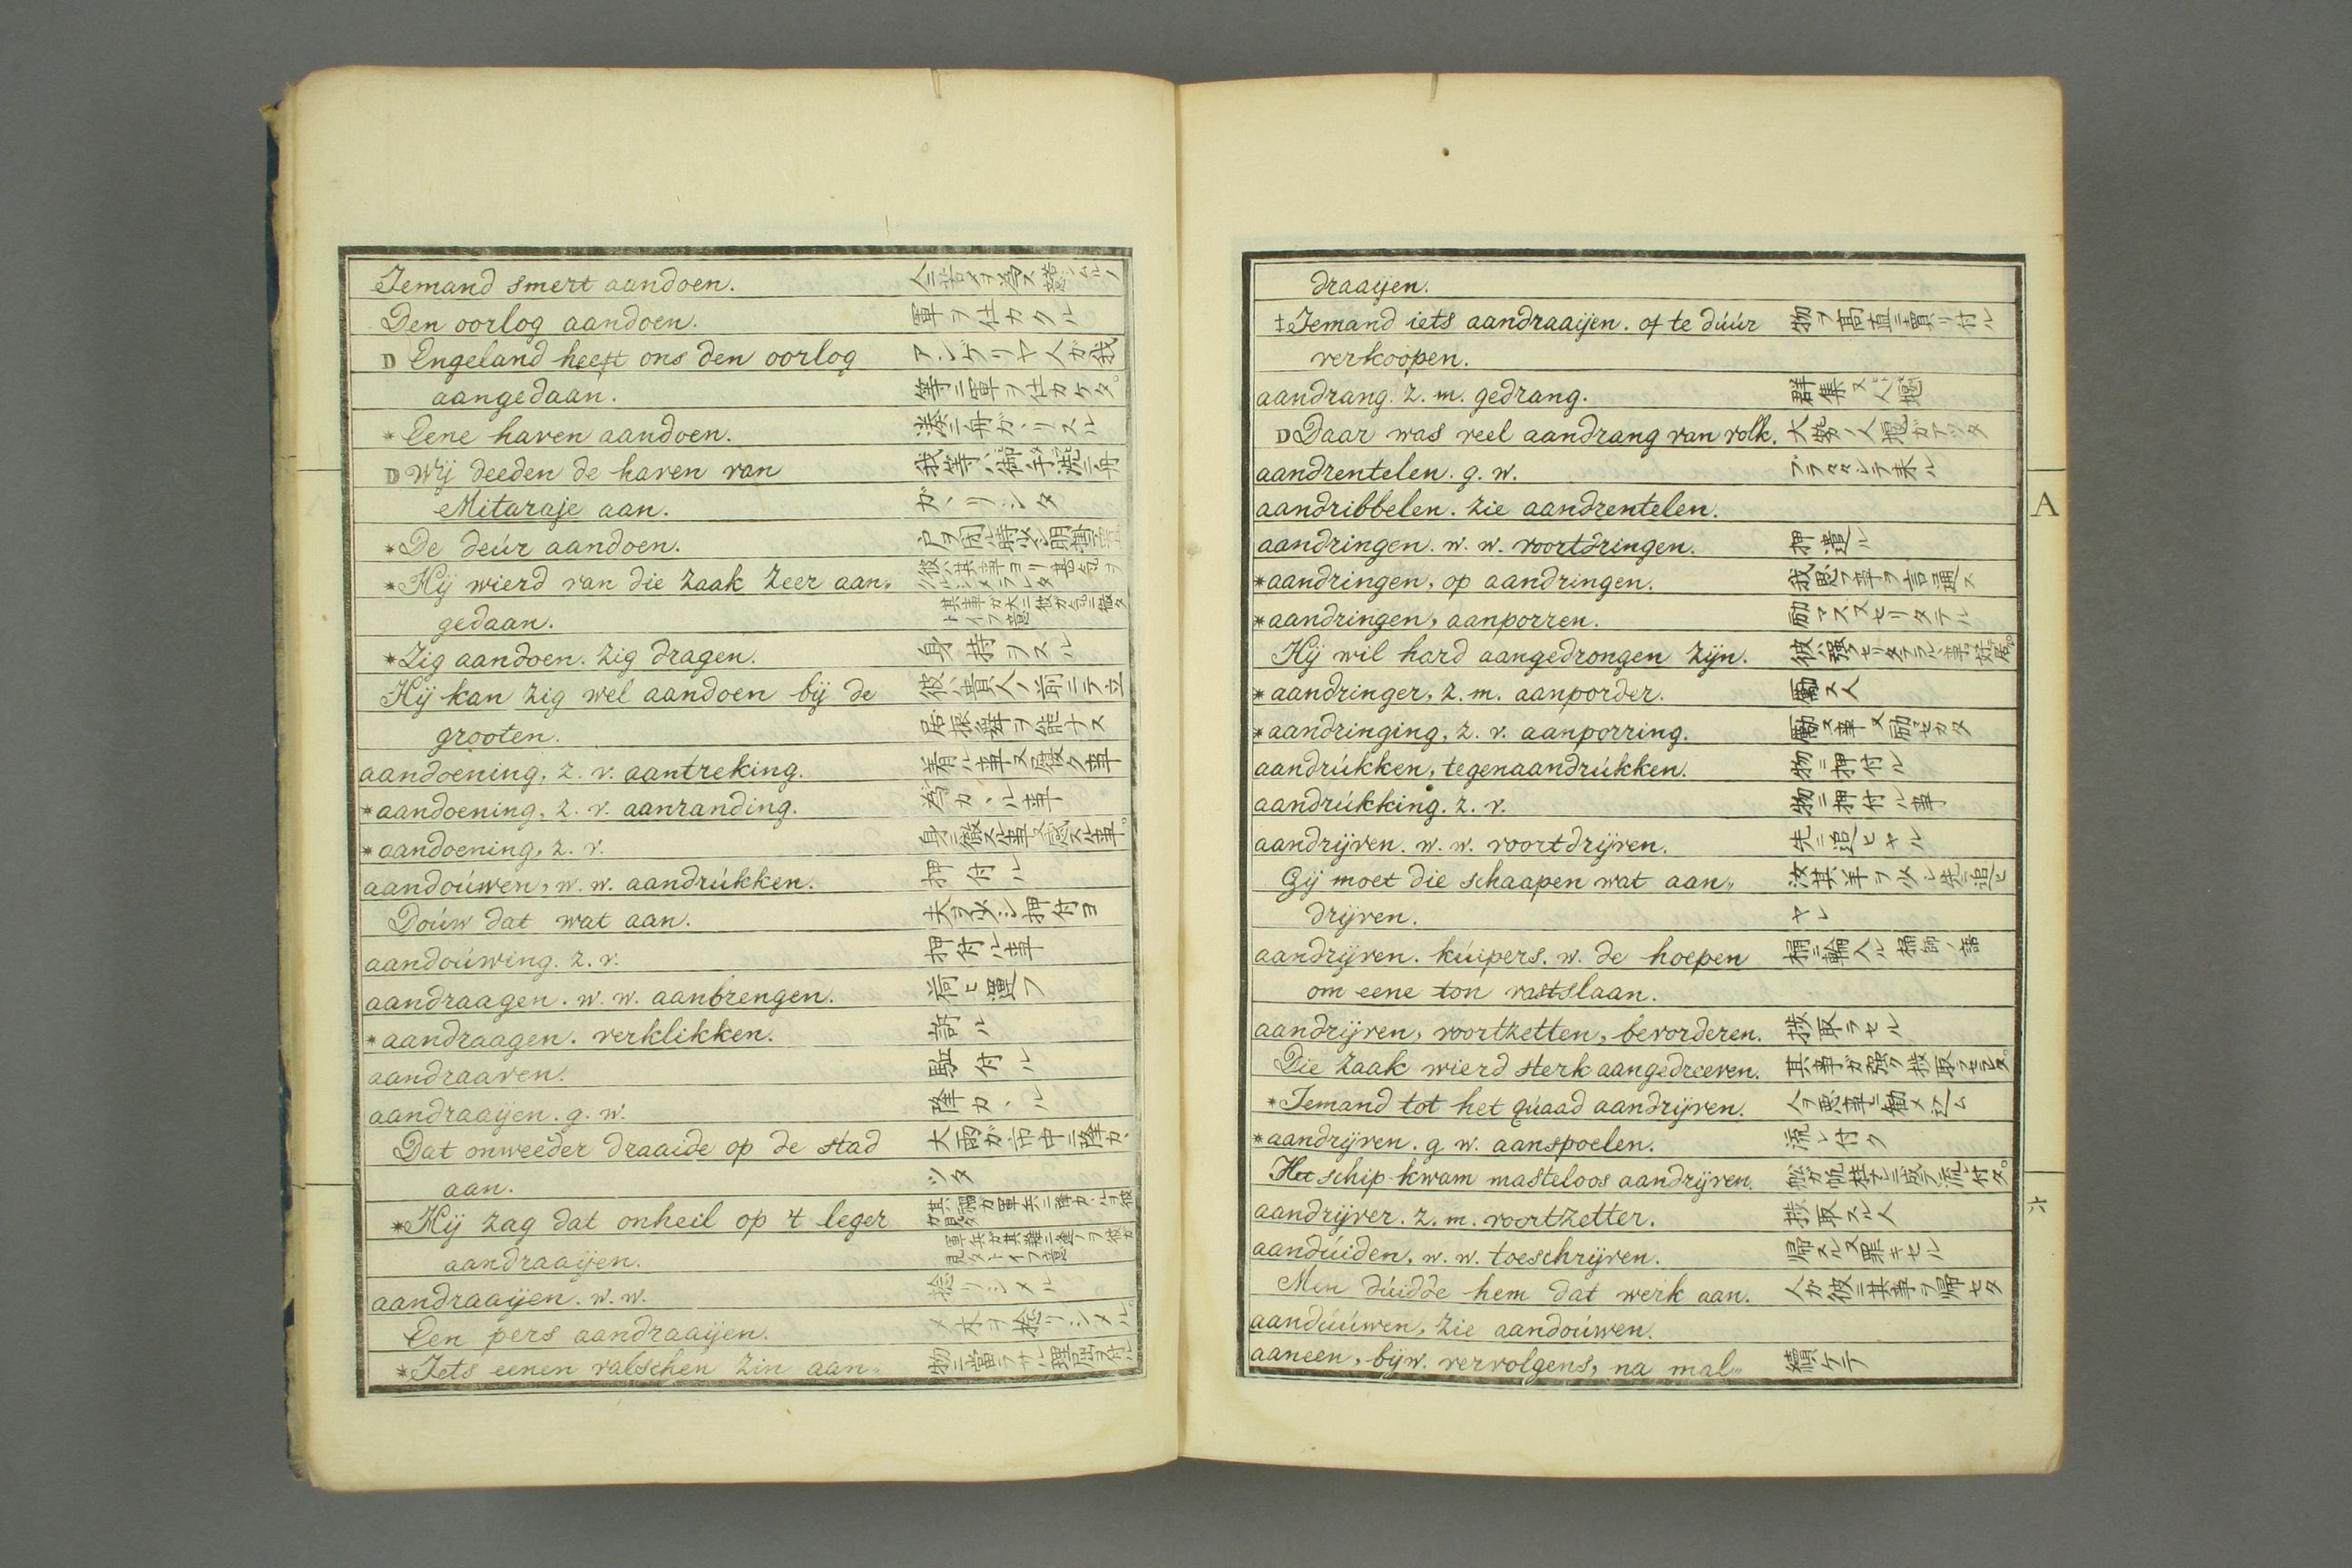 Iemand smert aandoen.
Den oorlog aandoen. 軍ヲ仕カクル
D Engeland heeft ons den oorlog アンゲリヤ人ガ我
aangedaan. 等ニ軍ヲ仕カケタ。
*Eene haven aandoen. 湊ニ舟ガヽリスル
D Wij deeden de haven van 我等ハ御手洗ニ舟
Mitaraje aan. ガヽリシタ
*De deúr aandoen.
*Hij wierd van die zaak zeer aan„
gedaan.
*Zig aandoen. zig dragen. 身持ヲスル
Hij kan zig wel aandoen bij de 彼ハ貴人ノ前ニテ立
grooten. 居振舞ヲ能ナス
aandoening, z. v. aantreking. 着ル事又履ク事
*aandoening, z. v. aanranding.
*aandoening, z. v.
aandoúwen, w. w. aandrúkken. 押付ル
Doúw dat wat aan. 夫ヲ少シ押付ヨ
aandoúwing. z. v. 押付ル事
aandraagen. w. w. aanbrengen. 荷ヒ運フ
*aandraagen. verklikken. 訴ル
aandraaven. 駈付ル
aandraaijen. g. w. 降カヽル
Dat onweeder draaide op de stad 大雨ガ市中ニ降カヽ
aan. ツタ
*Hij zag dat onheil op 't leger
aandraaijen.
aandraaijen. w. w. 捻リシメル
Een pers aandraaijen. メ木ヲ捻リシメル。
*Iets eenen valschen zin aan„ 物ニ當ラサル理屈ヲ付ル
draaijen.
‡Iemand iets aandraaijen. of te dúúr 物ヲ高直ニ賣リ付ル
verkoopen.
aandrang. z. m. gedrang.
D Daar was veel aandrang van volk. 大勢ノ人堰ガアツタ
aandrentelen. g. w. ブラ々々シテ来ル
aandribbelen. zie aandrentelen.
aandringen. w. w. voortdringen. 押遣ル
*aandringen, op aandringen. 我思フ事ヲ言通ス
*aandringen, aanporren. 励マス又セリタテル
Hij wil hard aangedrongen zijn.
*aandringer, z. m. aanporder. 勵ス人
*aandringing, z. v. aanporring.
aandrúkken, tegenaandrúkken. 物ニ押付ル
aandrúkking. z. v. 物ニ押付ル事
aandrijven. w. w. voortdrijven. 先ニ追ヒヤル
Gij moet die schaapen wat aan„ 汝其羊ヲ少シ先ニ追ヒ
drijven. ヤレ
aandrijven. kúipers. w. de hoepen 桶ニ輪入ル 桶師ノ語
om eene ton vastslaan.
aandrijven, voortzetten, bevorderen. 捗取ラセル
Die zaak wierd sterk aangedreeven. 其事ガ強ク捗取ラセラレタ。
*Iemand tot het qúaad aandrijven. 人ヲ悪事ニ勧メ込ム
*aandrijven. g w. aanspoelen. 流レ付ク
Het schip kwam masteloos aandrijven.
aandrijver. z. m. voortzetter. 捗取スル人
aandúiden, w. w. toeschrijven. 帰スル又罪キセル
Men dúidde hem dat werk aan. 人ガ彼ニ其事ヲ帰セタ
aandúúwen, zie aandoúwen.
aaneen, bijw. vervolgens, na mal„ 續ケテ
A
六